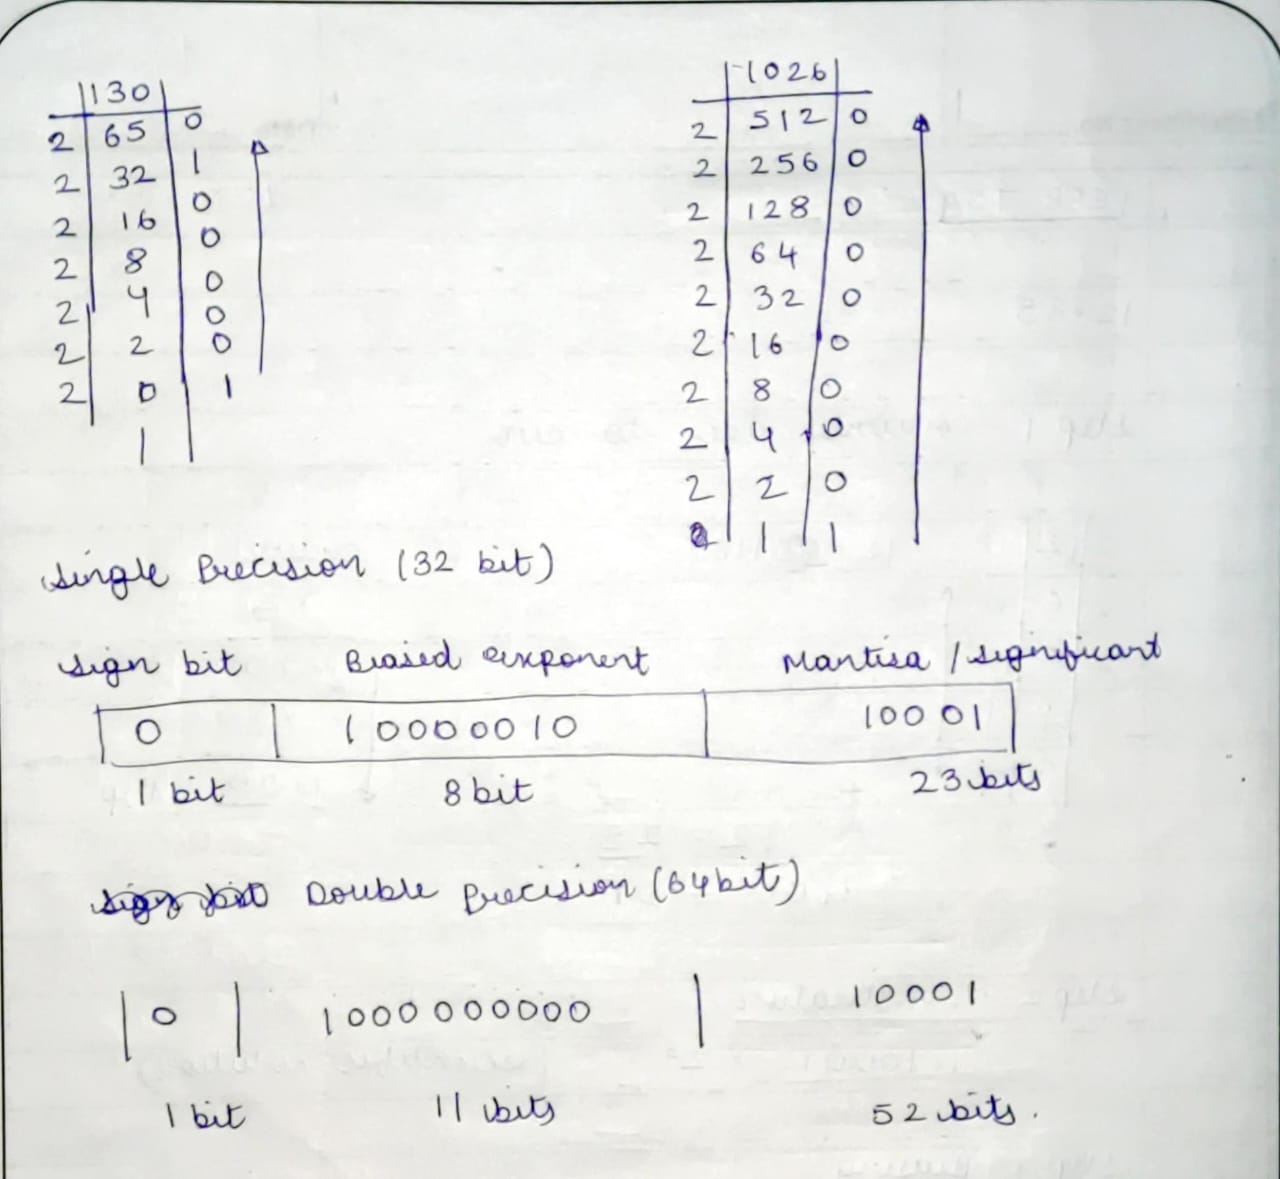 130
2 65 0
2 32 1
2 16 0
2 8 0
2 4 0
2 2 0
2 0 0
1 1
1026
2 512 0
2 256 0
2 128 0
2 64 0
2 32 0
2 16 0
2 8 0
2 4 0
2 2 0
2 1 1
Single Precision (32 bit)
Sign bit Biased exponent Mantisa / significant
0 10000010 10001
1 bit 8 bit 23 bits
Double Precision (64 bit)
0 1000000000 10001
1 bit 11 bits 52 bits.